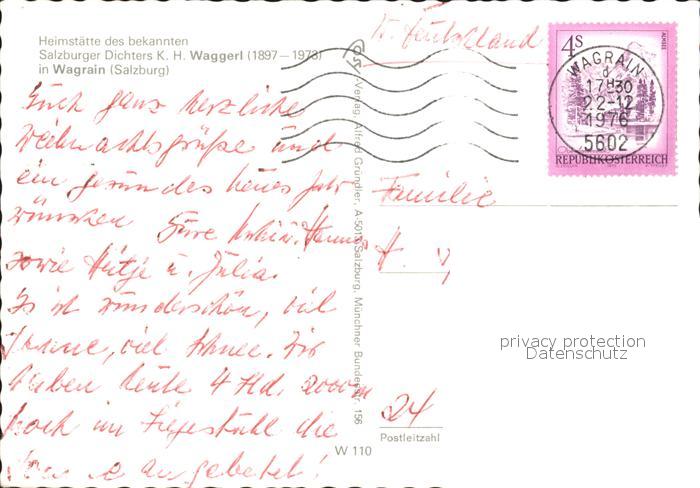 Heimstätte des bekannten
Salzburger Dichters K. H. Waggerl (1897–1973)
in Wagrain (Salzburg)
Euch ganz herzliche
Weihnachtsgrüße und
ein gesundes neues Jahr
wünschen Eure Hannes
sowie Antje u. Julia.
Es ist wunderschön, viel
Sonne, viel Schnee. Wir
haben heute 4 Std. 2000 m
hoch im Liegestuhl die
Sonne angebetet!
-Verlag, Alfred Gründler, A-5013 Salzburg, Münchner Bundesstr. 156
W 110
Deutschland
4S
ALMSEE
REPUBLIK ÖSTERREICH
WAGRAIN
d
17 30
22-12
1976
5602
Familie
H.
privacy protection
Datenschutz
24
Postleitzahl